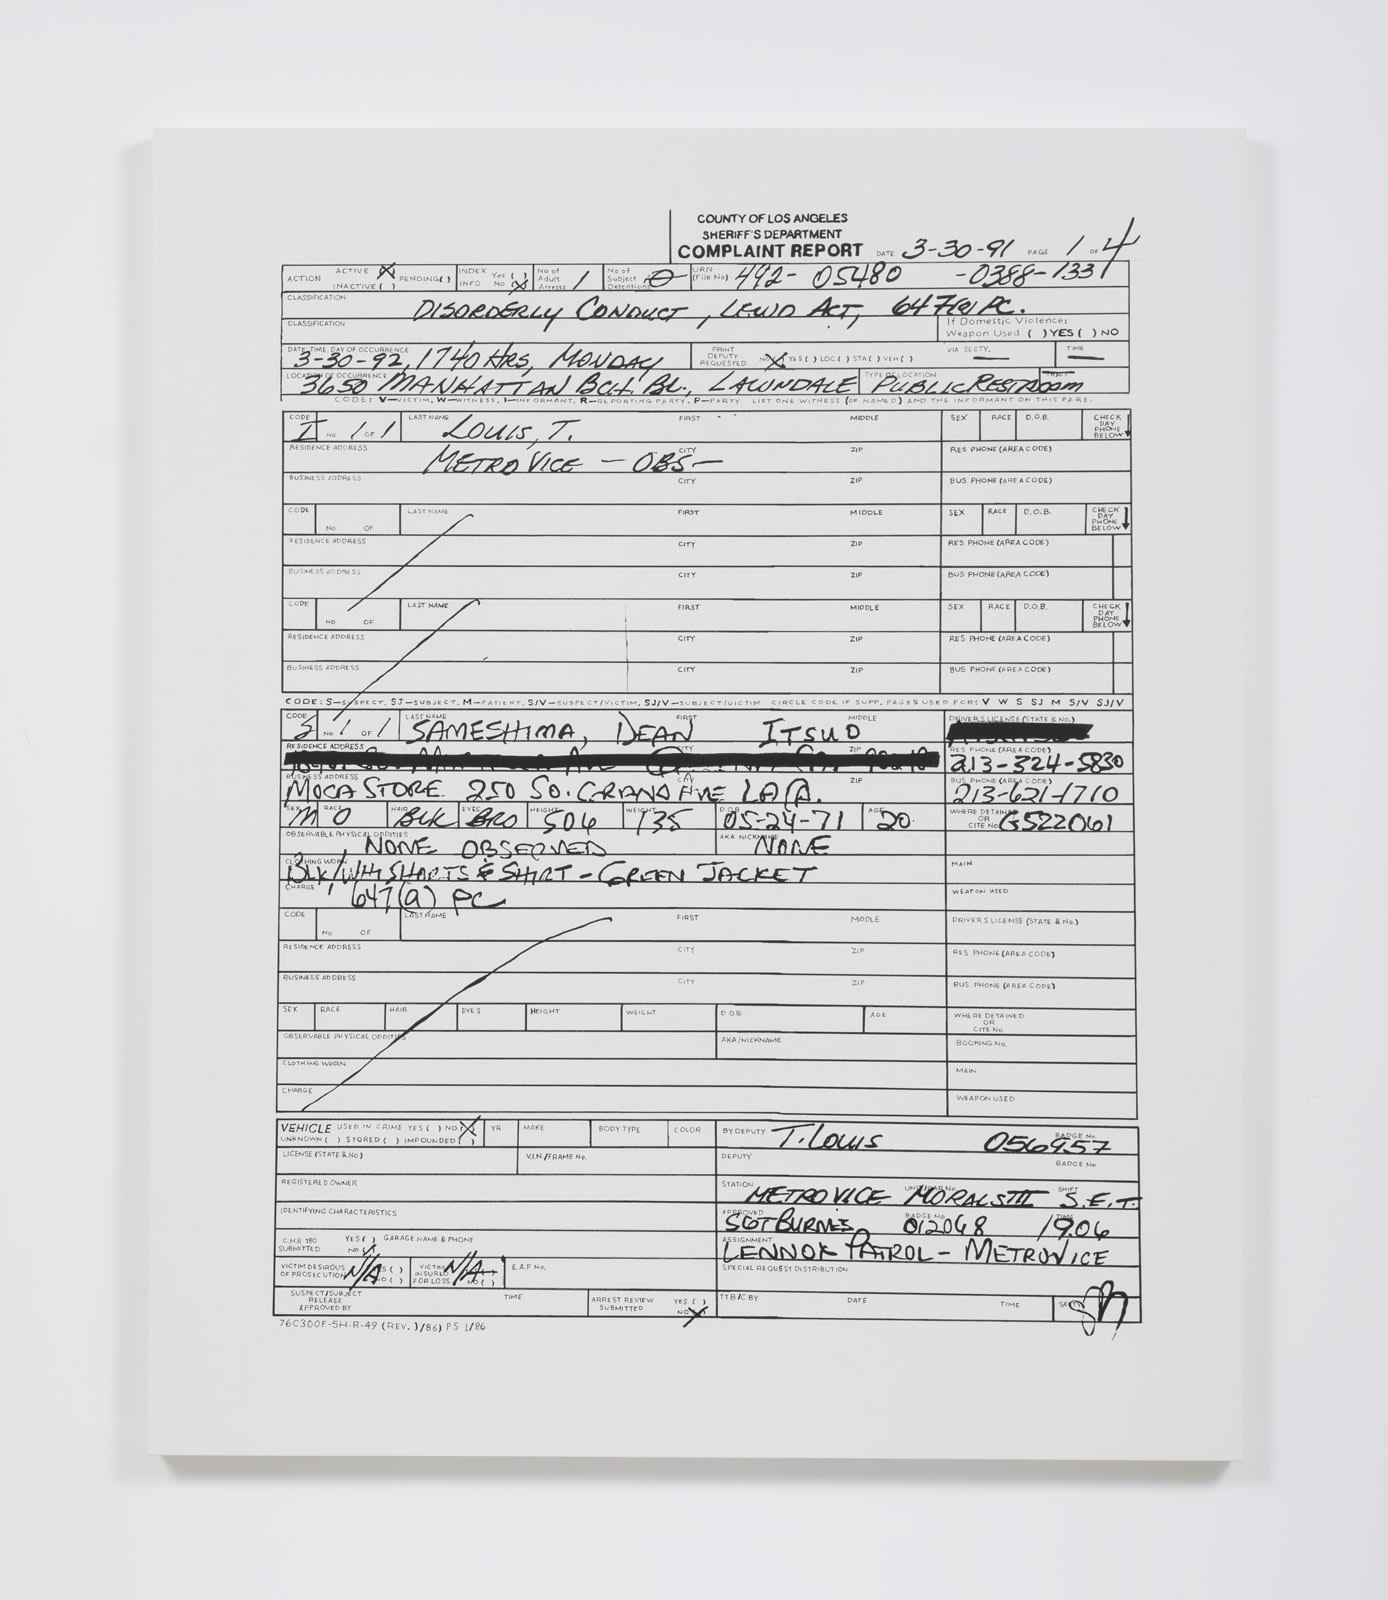 COUNTY OF LOS ANGELES
SHERIFF'S DEPARTMENT
COMPLAINT REPORT DATE 3-30-91 PAGE 1 OF 4
ACTION ACTIVE X PENDING( ) INACTIVE( ) INDEX INFO Yes ( ) No (X) No of Adult Arrests 1 No of Subject Detentions 0 URN (File No) 492- 05480 -0388-1331
CLASSIFICATION DISORDERLY CONDUCT, LEWD ACT, 647(a) PC.
CLASSIFICATION If Domestic Violence: Weapon Used ( ) YES ( ) NO
DATE, TIME, DAY OF OCCURRENCE 3-30-92, 1740 HRS, MONDAY PRINT DEPUTY REQUESTED NO X YES ( ) LOC ( ) STA ( ) VEH ( ) VIA SECTY. — TIME —
LOCATION OF OCCURRENCE 3650 MANHATTAN BCH. BL., LAWNDALE TYPE OF LOCATION PUBLIC RESTROOM TRACT
CODE: V—VICTIM, W—WITNESS, I—INFORMANT, R—REPORTING PARTY, P—PARTY LIST ONE WITNESS (OF NAMED) AND THE INFORMANT ON THIS PAGE.
CODE I No 1 OF 1 LAST NAME LOUIS, T. FIRST MIDDLE SEX RACE D.O.B. CHECK DAY PHONE BELOW
RESIDENCE ADDRESS METRO VICE — OBS — CITY ZIP RES PHONE (AREA CODE)
BUSINESS ADDRESS CITY ZIP BUS PHONE (AREA CODE)
CODE No OF LAST NAME FIRST MIDDLE SEX RACE D.O.B. CHECK DAY PHONE BELOW
RESIDENCE ADDRESS CITY ZIP RES PHONE (AREA CODE)
BUSINESS ADDRESS CITY ZIP BUS PHONE (AREA CODE)
CODE No OF LAST NAME FIRST MIDDLE SEX RACE D.O.B. CHECK DAY PHONE BELOW
RESIDENCE ADDRESS CITY ZIP RES PHONE (AREA CODE)
BUSINESS ADDRESS CITY ZIP BUS PHONE (AREA CODE)
CODE: S—SUSPECT, SJ—SUBJECT, M—PATIENT, S/V—SUSPECT/VICTIM, SJ/V—SUBJECT/VICTIM CIRCLE CODE IF SUPP. PAGES USED FOR: V W S SJ M S/V SJ/V
CODE S No 1 OF 1 LAST NAME SAMESHIMA, FIRST DEAN MIDDLE ITSUO DRIVERS LICENSE (STATE & No.)
RESIDENCE ADDRESS CITY ZIP RES PHONE (AREA CODE) 213-324-5830
BUSINESS ADDRESS MOCA STORE 250 SO. GRAND AVE LA CA. CITY ZIP BUS PHONE (AREA CODE) 213-621-1710
SEX M RACE O HAIR BLK EYES BRO HEIGHT 506 WEIGHT 135 D O B 05-24-71 AGE 20 WHERE DETAINED OR CITE No G522061
OBSERVABLE PHYSICAL ODDITIES NONE OBSERVED AKA NICKNAME NONE
CLOTHING WORN BLK/WHI SHORTS & SHIRT - GREEN JACKET MAIN
CHARGE 647(a) PC WEAPON USED
CODE No OF LAST NAME FIRST MIDDLE DRIVERS LICENSE (STATE & No.)
RESIDENCE ADDRESS CITY ZIP RES PHONE (AREA CODE)
BUSINESS ADDRESS CITY ZIP BUS PHONE (AREA CODE)
SEX RACE HAIR EYES HEIGHT WEIGHT D O B AGE WHERE DETAINED OR CITE No
OBSERVABLE PHYSICAL ODDITIES AKA/NICKNAME BOOKING No.
CLOTHING WORN MAIN
CHARGE WEAPON USED
VEHICLE USED IN CRIME YES ( ) NO X UNKNOWN ( ) STORED ( ) IMPOUNDED ( ) YR MAKE BODY TYPE COLOR BY DEPUTY T. LOUIS BADGE No. 056957
LICENSE (STATE & NO) V.I.N./FRAME No. DEPUTY BADGE No.
REGISTERED OWNER STATION METROVICE MORALS III SHIFT S.E.T.
IDENTIFYING CHARACTERISTICS APPROVED SGT BURNES BADGE No 012048 TIME 1906
C.H.R 180 SUBMITTED YES ( ) NO X GARAGE NAME & PHONE ASSIGNMENT LENNOX PATROL - METROVICE
VICTIM DESIROUS OF PROSECUTION N/A YES ( ) NO ( ) VICTIM INSURED FOR LOSS N/A NO ( ) E.A.P No. SPECIAL REQUEST DISTRIBUTION
SUSPECT/SUBJECT RELEASE APPROVED BY TIME ARREST REVIEW SUBMITTED YES ( ) NO X TTB/C BY DATE TIME
76C300F-5H-R-49 (REV. 1/86) PS 1/86